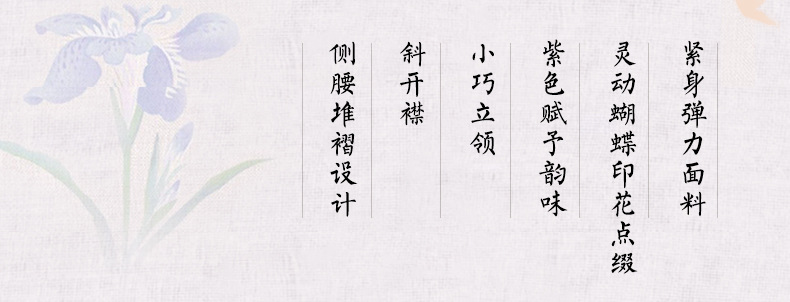 紧身弹力面料
灵动蝴蝶印花点缀
紫色赋予韵味
小巧立领
斜开襟
侧腰堆褶设计